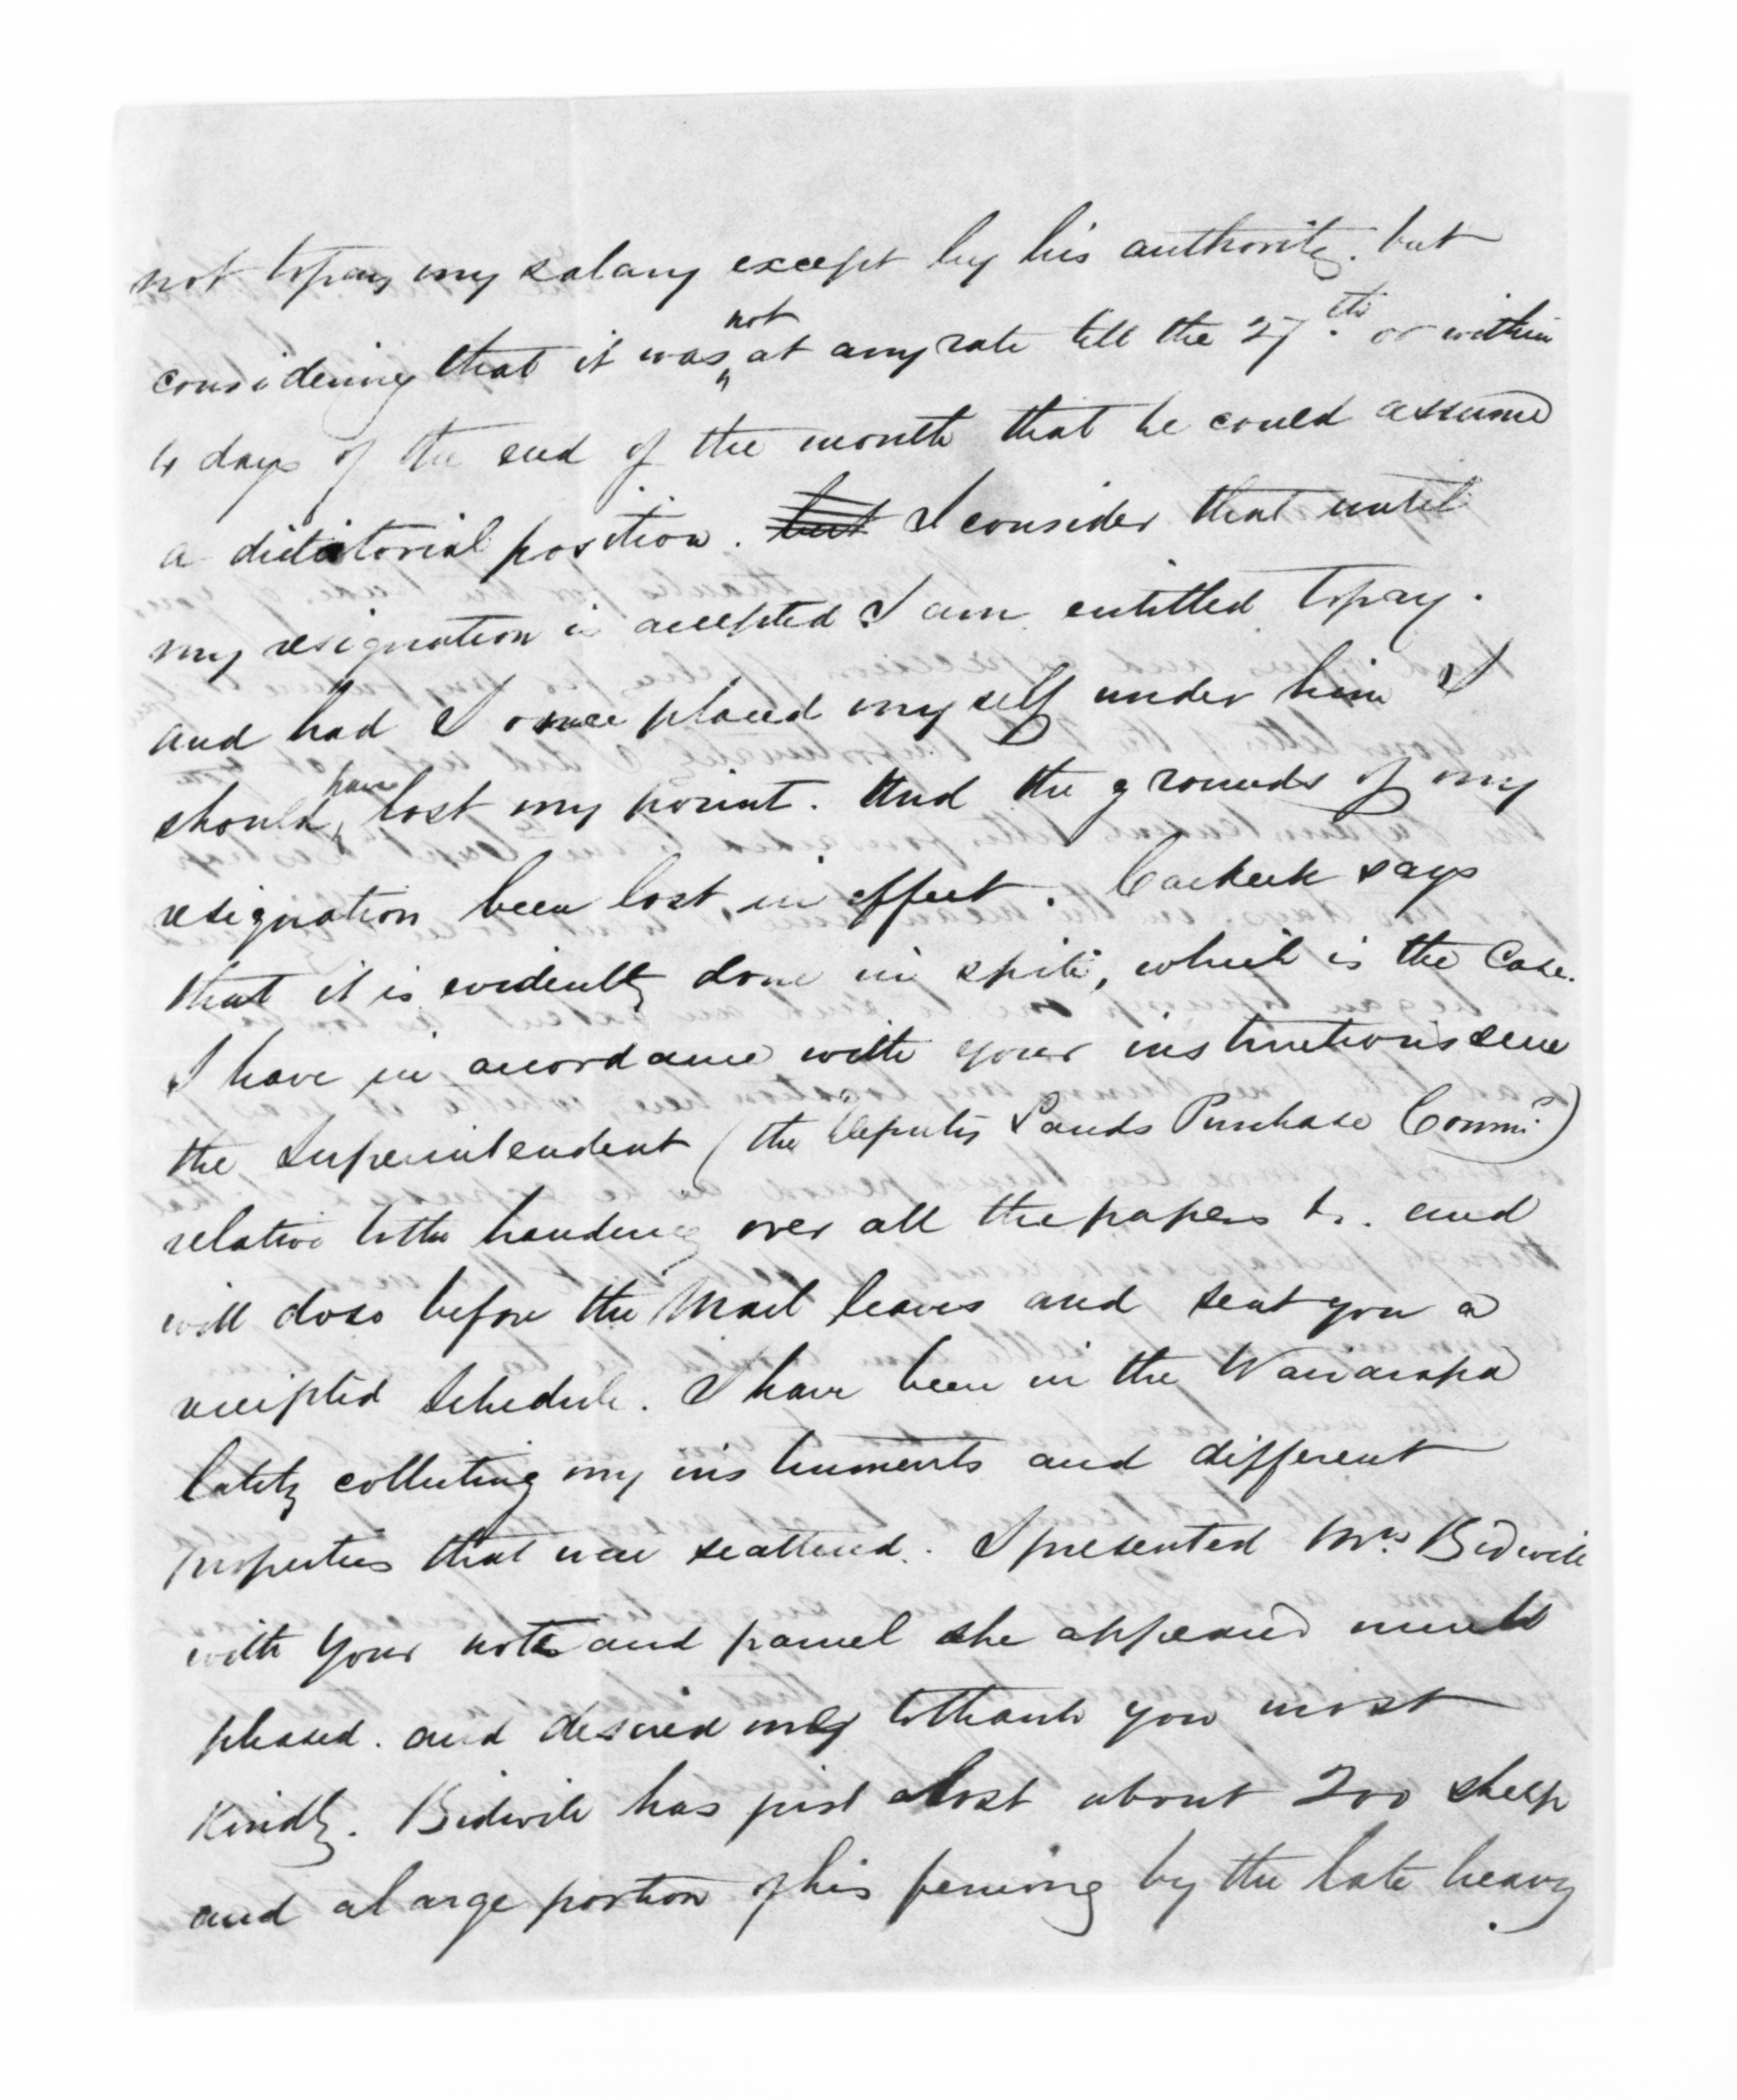 not to pay my salary except by his authority. but
considering that it was not at any rate till the 27.th or within
4 days of the end of the month that he could assume
a dictatorial position. but I consider that until
my resignation is accepted I am entitled to pay.
and had I once placed myself under him I
should have lost my point. And the grounds of my
resignation been lost in effect. Carkeek says
that it is evidently done in spite, which is the Case.
I have in accordance with your instructions seen
the Superintendent (the Deputy Lands Purchase Commr.)
relative to the handing over all the papers &c. and
will do so before the Mail leaves and sent you a
receipted Schedule. I have been in the Wairarapa
lately collecting my instruments and different
properties that were scattered. I presented Mrs. Bidwill
with your note and parcel she appeared much
pleased. and desired me to thank you most
Kindly. Bidwill has just lost about 200 sheep
and a large portion of his fencing by the late heavy